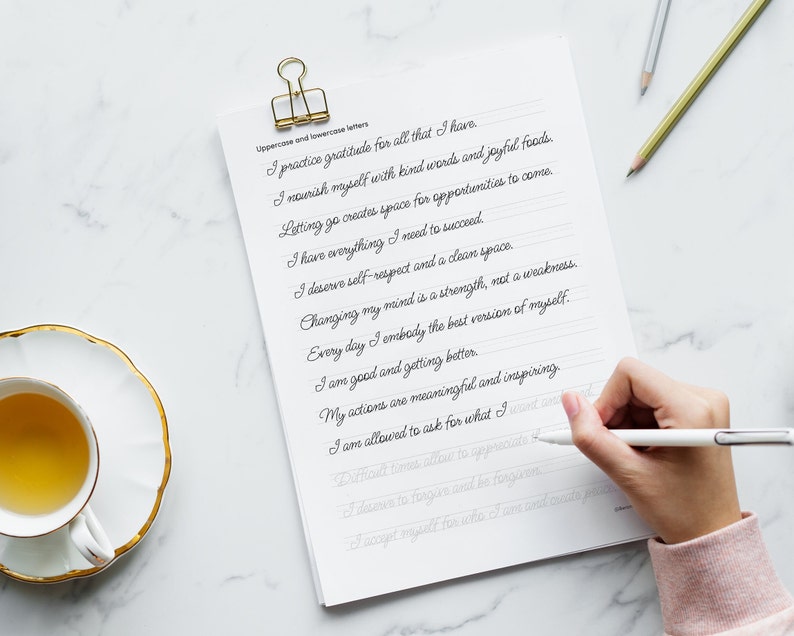 Uppercase and lowercase letters
I practice gratitude for all that I have.
I nourish myself with kind words and joyful foods.
Letting go creates space for opportunities to come.
I have everything I need to succeed.
I deserve self-respect and a clean space.
Changing my mind is a strength, not a weakness.
Every day I embody the best version of myself.
I am good and getting better.
My actions are meaningful and inspiring.
I am allowed to ask for what I want and need.
Difficult times allow to appreciate
I deserve to forgive and be forgiven.
I accept myself for who I am and create